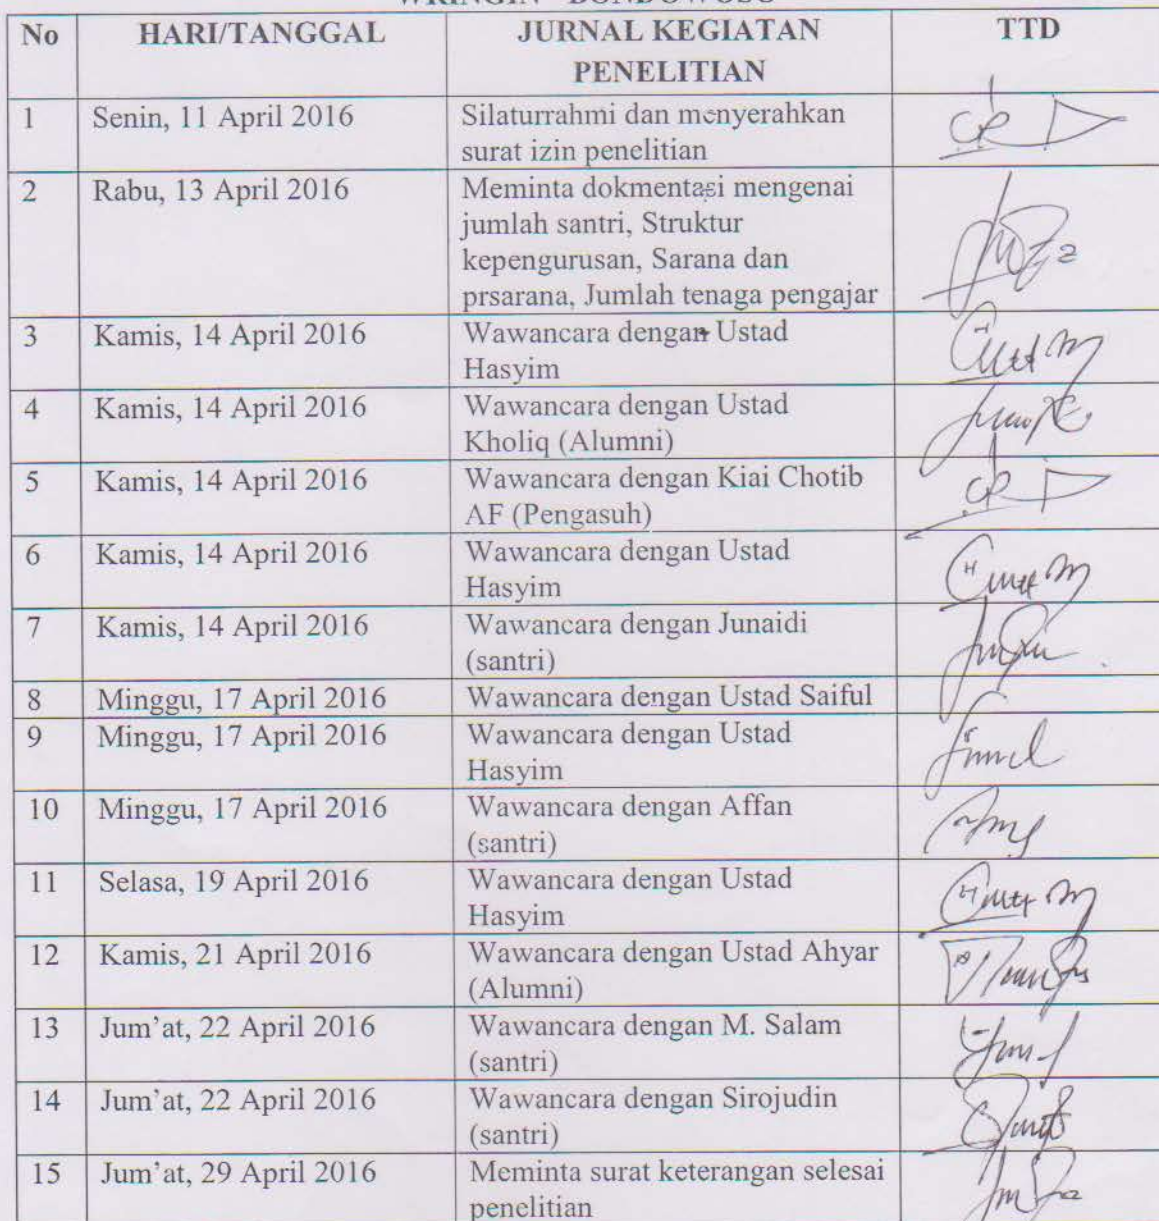 No HARI/TANGGAL JURNAL KEGIATAN TTD
PENELITIAN
1 Senin, 11 April 2016 Silaturrahmi dan menyerahkan
surat izin penelitian
2 Rabu, 13 April 2016 Meminta dokmentasi mengenai
jumlah santri, Struktur
kepengurusan, Sarana dan
prsarana, Jumlah tenaga pengajar
3 Kamis, 14 April 2016 Wawancara dengan Ustad
Hasyim
4 Kamis, 14 April 2016 Wawancara dengan Ustad
Kholiq (Alumni)
5 Kamis, 14 April 2016 Wawancara dengan Kiai Chotib
AF (Pengasuh)
6 Kamis, 14 April 2016 Wawancara dengan Ustad
Hasyim
7 Kamis, 14 April 2016 Wawancara dengan Junaidi
(santri)
8 Minggu, 17 April 2016 Wawancara dengan Ustad Saiful
9 Minggu, 17 April 2016 Wawancara dengan Ustad
Hasyim
10 Minggu, 17 April 2016 Wawancara dengan Affan
(santri)
11 Selasa, 19 April 2016 Wawancara dengan Ustad
Hasyim
12 Kamis, 21 April 2016 Wawancara dengan Ustad Ahyar
(Alumni)
13 Jum'at, 22 April 2016 Wawancara dengan M. Salam
(santri)
14 Jum'at, 22 April 2016 Wawancara dengan Sirojudin
(santri)
15 Jum'at, 29 April 2016 Meminta surat keterangan selesai
penelitian